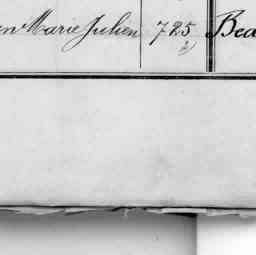 en Marie Julien 725 Bea
2)